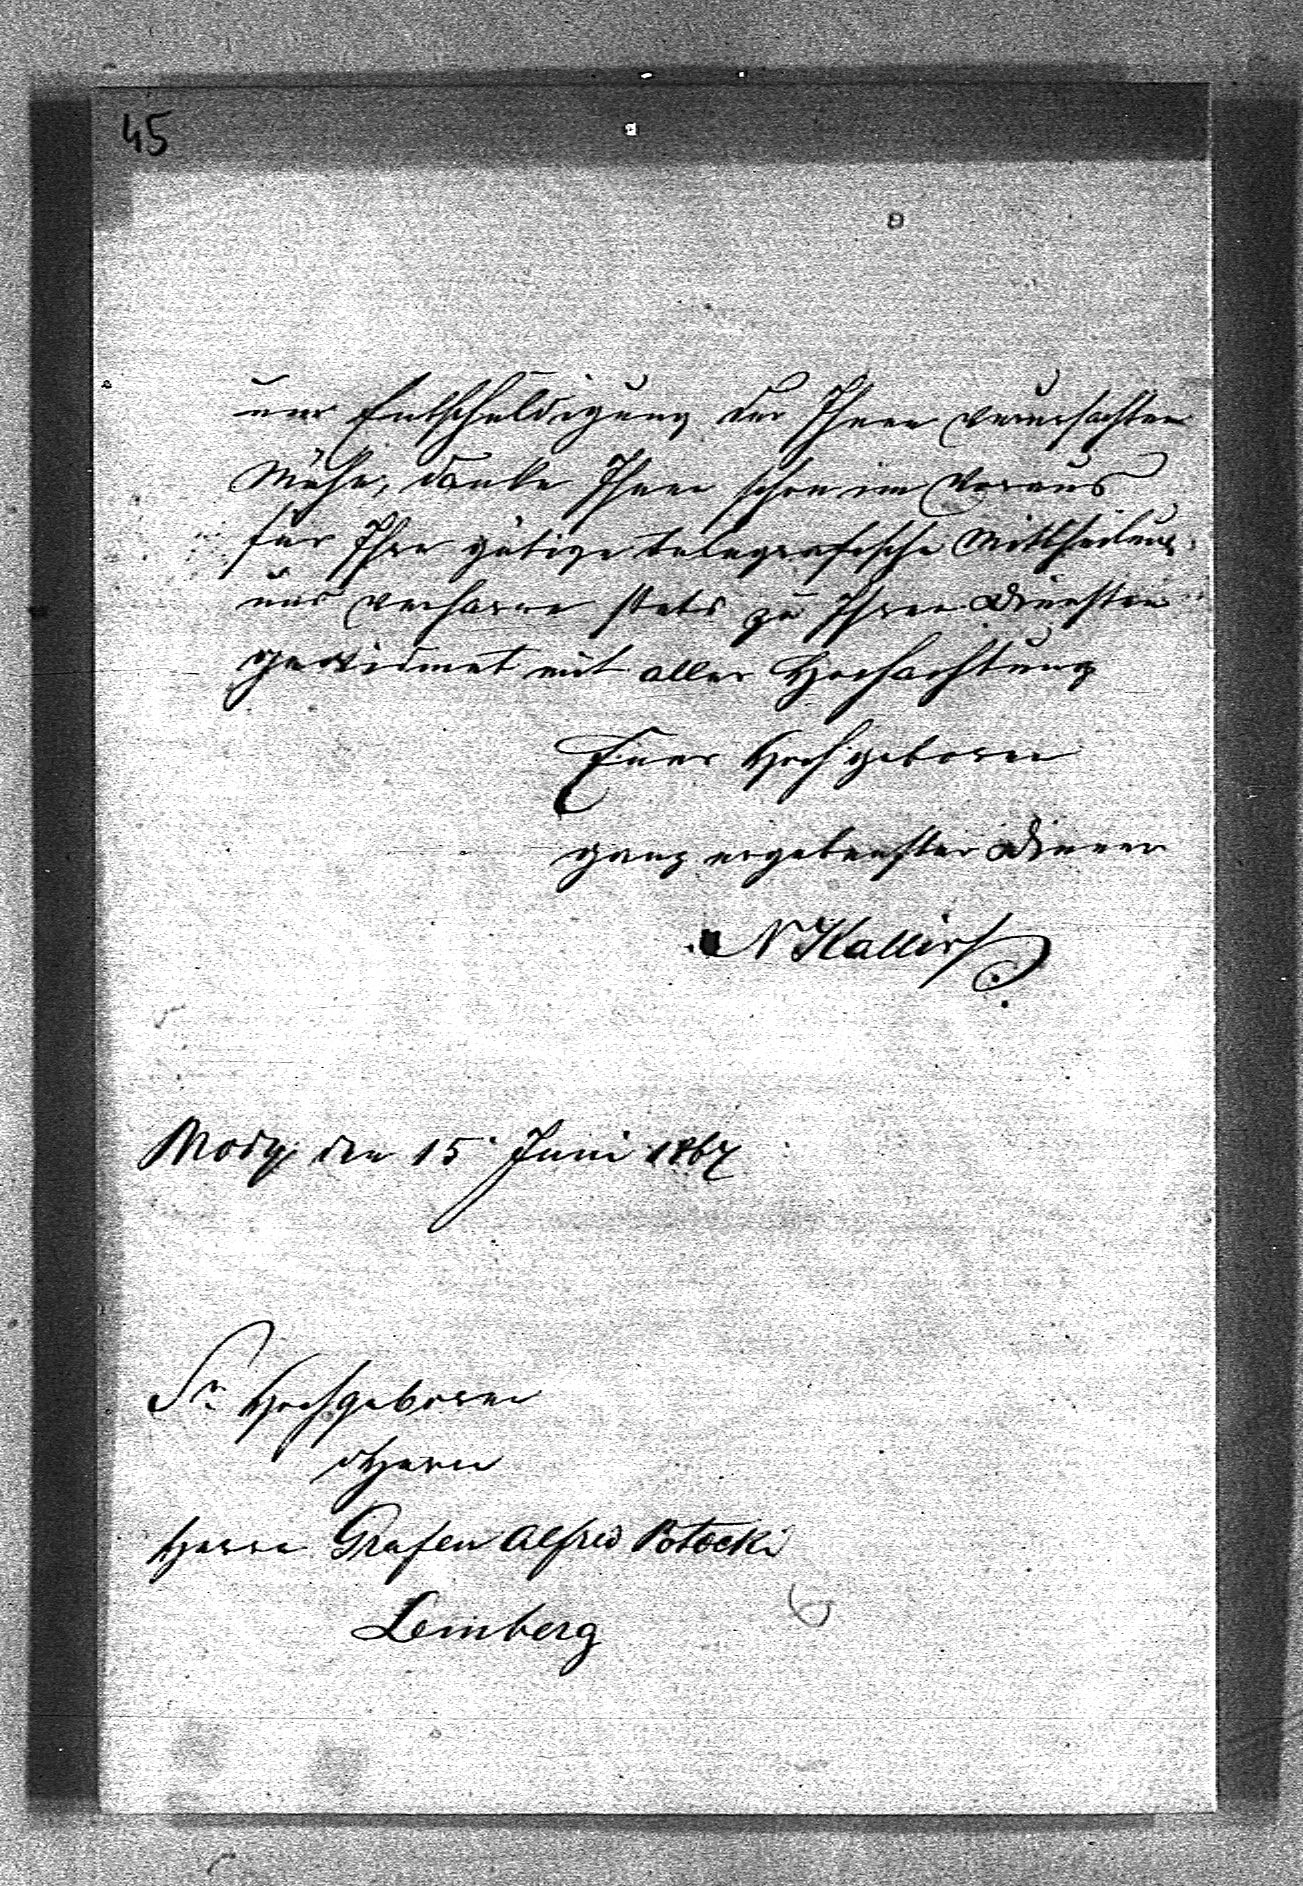 45
um Entschuldigung der Ihnen verursachten
Mühe, danke Ihnen schon im Voraus
für Ihre gütige telegrafische Mittheilung
und verharre stets zu Ihren Diensten
gewidmet mit aller Hochachtung
Euer Hochgeboren
ganz ergebenster Diener
N Kallir
den 15 Juni 1867
Sr Hochgeboren
Herrn
Herrn Grafen Alfred Potocki
Lemberg
6